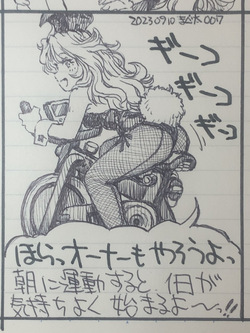 20230910 鈴木 0017
ギーコ
ギーコ
ギコッ
ほらっオーナーもやろうよっ
朝に運動すると 1日が
気持ちよく 始まるよ〜っ!!